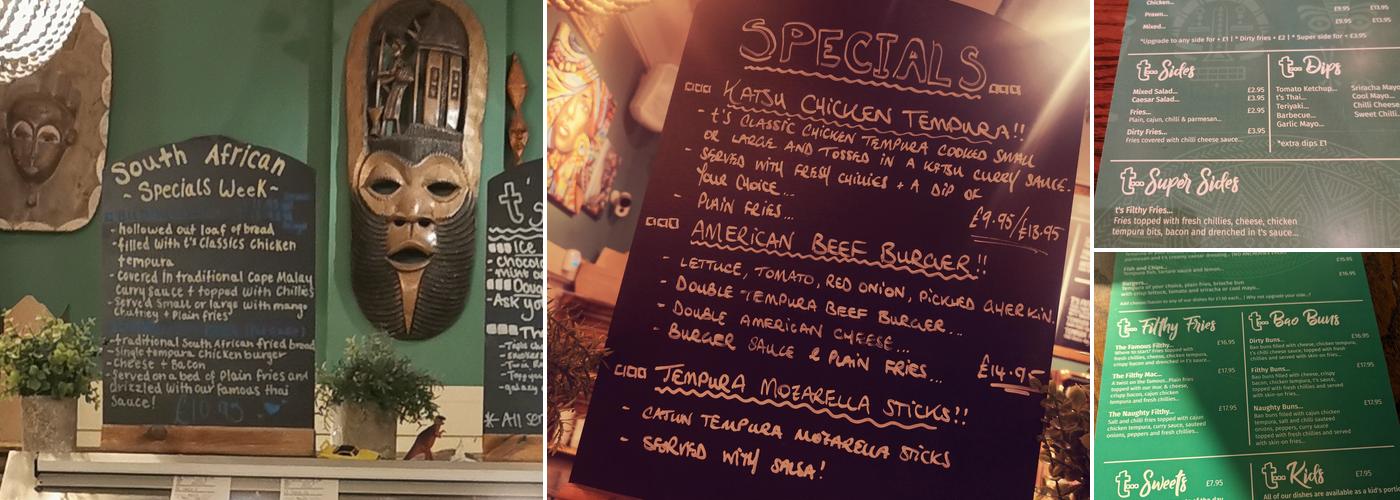 South African
~ Specials Week ~
- hollowed out loaf of bread
- filled with t's Classics Chicken
tempura
- covered in traditional Cape Malay
curry sauce & topped with Chillis
- Served Small or large with mango
chutney + Plain fries
- traditional South African fried bread
- Single tempura chicken burger
- Cheese + Bacon
- Served on a bed of Plain fries and
drizzled with our famous thai
Sauce!
£10.95
t's
Ice
- Chocola
mint
Doug
- Ask yo
* All
SPECIALS
KATSU CHICKEN TEMPURA!!
- t's CLASSIC CHICKEN TEMPURA COOKED SMALL
OR LARGE AND TOSSED IN A KATSU CURRY SAUCE.
- SERVED WITH FRESH CHILLIES + A DIP OF
YOUR CHOICE...
- PLAIN FRIES...
£9.95/£13.95
AMERICAN BEEF BURGER!!
- LETTUCE, TOMATO, RED ONION, PICKLED GHERKIN.
- DOUBLE TEMPURA BEEF BURGER...
- DOUBLE AMERICAN CHEESE...
- BURGER SAUCE & PLAIN FRIES...
£14.95
TEMPURA MOZARELLA STICKS!!
- CAJUN TEMPURA MOZARELLA STICKS
- SERVED WITH SALSA!
Chicken...
Prawn... £9.95 £13.95
Mixed... £9.95 £13.95
*Upgrade to any side for + £1 | * Dirty fries + £2 | * Super side for + £3.95
t... Sides
Mixed Salad... £2.95
Caesar Salad... £3.95
Fries... £2.95
Plain, cajun, chilli & parmesan...
Dirty Fries... £3.95
Fries covered with chilli cheese sauce...
t... Dips
Tomato Ketchup... Sriracha Mayo
t's Thai... Cool Mayo...
Teriyaki... Chilli Cheese
Barbecue... Sweet Chilli
Garlic Mayo...
*extra dips £1
t... Super Sides
t's Filthy Fries...
Fries topped with fresh chillies, cheese, chicken
tempura bits, bacon and drenched in t's sauce...
Fish and Chips... £15.95
Tempura fish, tartare sauce and lemon...
Burgers... £16.95
Tempura of your choice, plain fries, brioche bun
with crisp lettuce, tomato and sriracha or cool mayo...
t... Filthy Fries
The Famous Filthy... £16.95
Where to start? Fries topped with
fresh chillies, cheese, chicken tempura,
crispy bacon and drenched in t's sauce...
The Filthy Mac... £17.95
A twist on the famous. Plain fries
topped with our mac & cheese,
crispy bacon, cajun chicken
tempura and fresh chillies...
The Naughty Filthy... £17.95
Salt and chilli fries topped with cajun
chicken tempura, curry sauce, sauteed
onions, peppers and fresh chillies...
t... Bao Buns
Dirty Buns... £16.95
Bao buns filled with cheese, chicken tempura,
t's chilli cheese sauce, topped with fresh
chillies and served with skin-on fries...
Filthy Buns... £17.95
Bao buns filled with cheese, crispy
bacon, chicken tempura, t's sauce,
topped with fresh chillies and served
with skin-on fries...
Naughty Buns... £17.95
Bao buns filled with cajun chicken
tempura, salt and chilli sauteed
onions, peppers, curry sauce
topped with fresh chillies and served
with skin-on fries...
t... Sweets £7.95
t... Kids £7.95
All of our dishes are available as a kid's